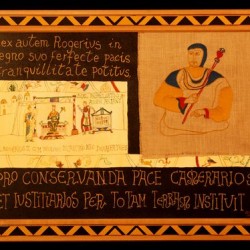 ex autem Rogerius in
regno suo perfecte pacis
tranquillitate potitus
PRO CONSERVANDA PACE CAMERARIOS
ET IUSTITIARIOS PER TOTAM TERRAM INSTITUIT